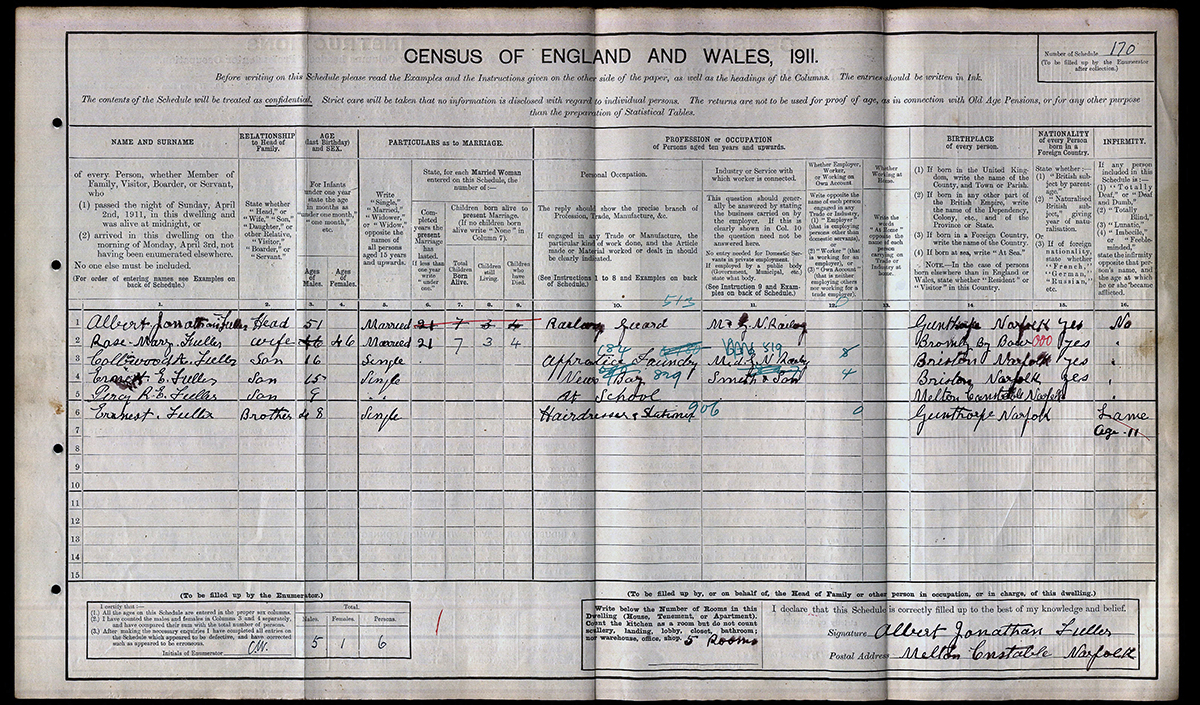 CENSUS OF ENGLAND AND WALES, 1911.
Number of Schedule 170
(To be filled up by the Enumerator
after collection.)
Before writing on this Schedule please read the Examples and the Instructions given on the other side of the paper, as well as the headings of the Columns. The entries should be written in Ink.
The contents of the Schedule will be treated as confidential. Strict care will be taken that no information is disclosed with regard to individual persons. The returns are not to be used for proof of age, as in connection with Old Age Pensions, or for any other purpose
than the preparation of Statistical Tables.
NAME AND SURNAME
of every Person, whether Member of
Family, Visitor, Boarder, or Servant,
who
(1) passed the night of Sunday, April
2nd, 1911, in this dwelling and
was alive at midnight, or
(2) arrived in this dwelling on the
morning of Monday, April 3rd, not
having been enumerated elsewhere.
No one else must be included.
(For order of entering names see Examples on
back of Schedule.)
RELATIONSHIP
to Head of
Family.
State whether
"Head," or
"Wife," "Son,"
"Daughter," or
other Relative,
"Visitor,"
"Boarder," or
"Servant."
AGE
(last Birthday)
and SEX.
For Infants
under one year
state the age
in months as
"under one month,"
"one month,"
etc.
Ages of Males.
Ages of Females.
PARTICULARS as to MARRIAGE.
Write
"Single,"
"Married,"
"Widower,"
or "Widow,"
opposite the
names of
all persons
aged 15 years
and upwards.
State, for each Married Woman
entered on this Schedule, the
number of:—
Completed years the present Marriage has lasted.
If less than one year write "under one."
Children born alive to
present Marriage.
(If no children born
alive write "None" in
Column 7).
Total Children Born Alive.
Children still Living.
Children who have Died.
PROFESSION or OCCUPATION
of Persons aged ten years and upwards.
Personal Occupation.
The reply should show the precise branch of
Profession, Trade, Manufacture, &c.
If engaged in any Trade or Manufacture, the
particular kind of work done, and the Article
made or Material worked or dealt in should
be clearly indicated.
(See Instructions 1 to 8 and Examples on back
of Schedule.)
513
Industry or Service with
which worker is connected.
This question should generally be answered by stating
the business carried on by
the employer. If this is
clearly shown in Col. 10
the question need not be
answered here.
No entry needed for Domestic Servants in private employment.
If employed by a public body
(Government, Municipal, etc.)
state what body.
(See Instruction 9 and Examples on back of Schedule.)
Whether Employer,
Worker,
or Working on
Own Account.
Write opposite the
name of each person
engaged in any
Trade or Industry,
(1) "Employer"
(that is employing
persons other than
domestic servants),
or
(2) "Worker" (that
is working for an
employer), or
(3) "Own Account"
(that is neither
employing others nor
working for a trade
employer).
Whether
Working at
Home.
Write the
words
"At Home"
opposite the
name of each
person
carrying on
Trade or
Industry at
home.
BIRTHPLACE
of every person.
(1) If born in the United Kingdom, write the name of the
County, and Town or Parish.
(2) If born in any other part of
the British Empire, write the
name of the Dependency,
Colony, etc., and of the
Province or State.
(3) If born in a Foreign Country,
write the name of the Country.
(4) If born at sea, write "At Sea."
NOTE.—In the case of persons
born elsewhere than in England or
Wales, state whether "Resident" or
"Visitor" in this Country.
NATIONALITY
of every Person
born in a
Foreign Country.
State whether:—
(1) "British subject by parentage."
(2) "Naturalised British subject," giving
year of naturalisation.
Or
(3) If of foreign
nationality,
state whether
"French,"
"German,"
"Russian,"
etc.
INFIRMITY.
If any person
included in this
Schedule is:—
(1) "Totally
Deaf," or "Deaf
and Dumb,"
(2) "Totally
Blind,"
(3) "Lunatic,"
(4) "Imbecile,"
or "Feeble-
minded,"
state the infirmity
opposite that person's name, and
the age at which
he or she became
afflicted.
1. 2. 3. 4. 5. 6. 7. 8. 9. 10. 11. 12. 13. 14. 15. 16.
1 Albert Jonathan Fuller Head 51 Married 21 7 3 4 Railway Guard M & G. N. Railway Gunthorpe Norfolk yes No
2 Rose Mary Fuller wife 46 46 Married 21 7 3 4 Bromly by Bow 000 yes "
184 519
3 Fuller Son 16 Single Apprentice Foundry M & G. N. Railway 8 Briston Norfolk yes "
4 Ernest. E. Fuller Son 15 Single News Boy 829 Smith & Son 4 Briston Norfolk yes "
5 Percy R. E. Fuller Son 9 At School Melton Constable Norfolk "
6 Ernest. Fuller Brother 48 Single Hairdresser & Stationer 906 0 Gunthorpe Norfolk Lame
7 age 11
8
9
10
11
12
13
14
15
(To be filled up by the Enumerator.)
I certify that:—
(1.) All the ages on this Schedule are entered in the proper sex columns.
(2.) I have counted the males and females in Columns 3 and 4 separately,
and have compared their sum with the total number of persons.
(3.) After making the necessary enquiries I have completed all entries on
the Schedule which appeared to be defective, and have corrected
such as appeared to be erroneous.
Initials of Enumerator
Total.
Males. Females. Persons.
5 1 6
(To be filled up by, or on behalf of, the Head of Family or other person in occupation, or in charge, of this dwelling.)
Write below the Number of Rooms in this
Dwelling (House, Tenement, or Apartment).
Count the kitchen as a room but do not count
scullery, landing, lobby, closet, bathroom;
nor warehouse, office, shop.
5 Rooms
I declare that this Schedule is correctly filled up to the best of my knowledge and belief.
Signature Albert Jonathan Fuller
Postal Address Melton Constable Norfolk